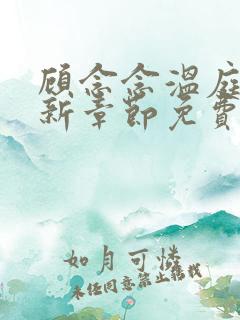 顾念念温庭
新章节免费
如月可怜
未经同意禁止转载